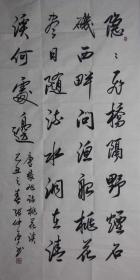 隐隐飞桥隔野烟石
矶西畔问渔船桃花
尽日随流水洞在清
溪何处边
唐张旭诗桃花溪